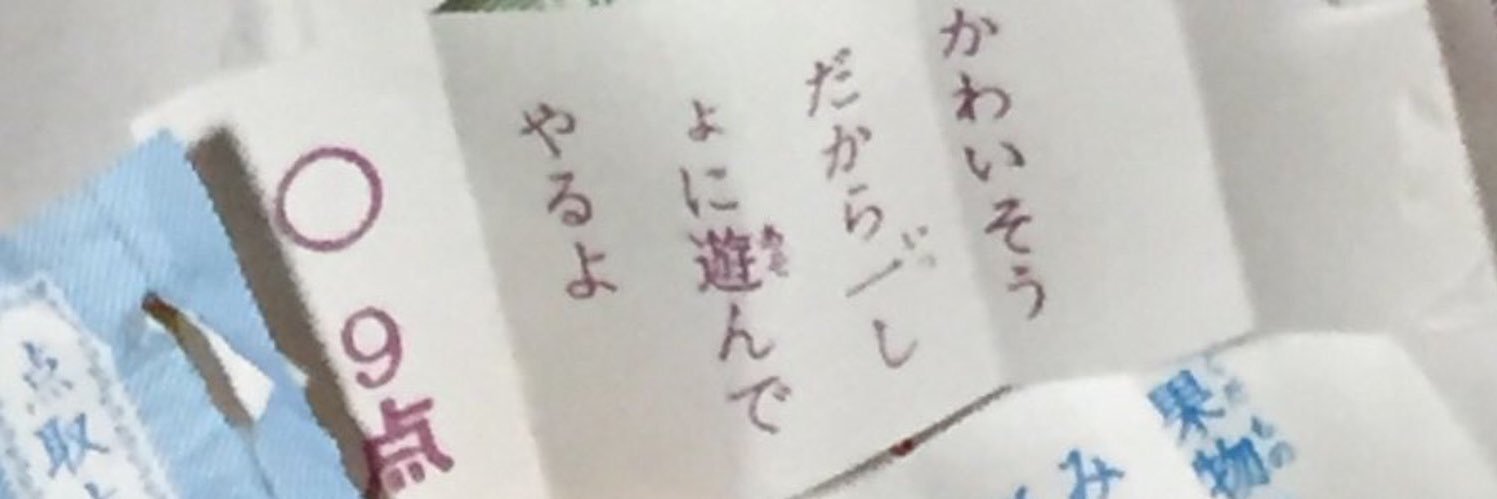 かわいそう
だから一し
ょに遊んで
やるよ
○ 9点
果物
み
点取